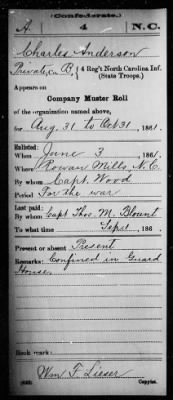 (Confederate.)
A. 4 N.C.
Charles Anderson
Private, Co. B, 4 Reg't North Carolina Inf.
(State Troops.)
Appears on
Company Muster Roll
of the organization named above,
for Aug. 31 to Oct 31, 1861.
Enlisted:
When June 3, 1861.
Where Rowan Mills, N.C.
By whom Capt. Wood
Period For the war
Last paid:
By whom Capt Thos. M. Blount
To what time Sept 1, 186 .
Present or absent Present
Remarks: Confined in Guard
House.
Book mark:
Wm F. Lieser
(642) Copyist.